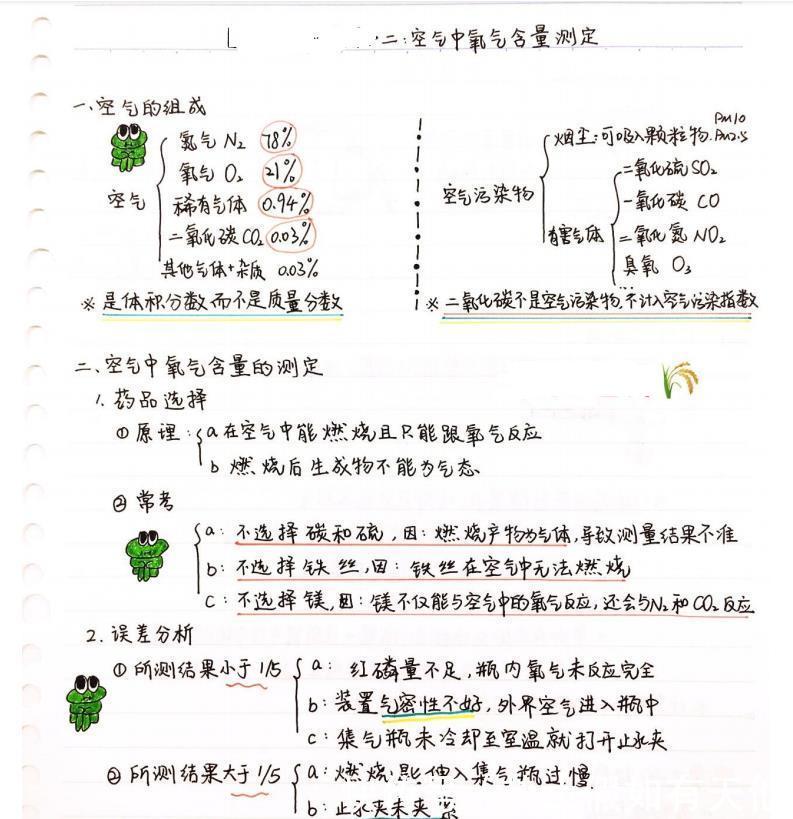 二:空气中氧气含量测定
一.空气的组成
空气
氮气 N₂ 78%
氧气 O₂ 21%
稀有气体 0.94%
二氧化碳CO₂ 0.03%
其他气体+杂质 0.03%
※ 是体积分数而不是质量分数
空气污染物
烟尘:可吸入颗粒物. PM10 PM2.5
有害气体
二氧化硫SO₂
一氧化碳 CO
二氧化氮 NO₂
臭氧 O₃
……
※ 二氧化碳不是空气污染物,不计入空气污染指数
二、空气中氧气含量的测定
1. 药品选择
① 原理: a 在空气中能燃烧且只能跟氧气反应
b 燃烧后生成物不能为气态
② 常考
a: 不选择碳和硫,因:燃烧产物为气体,导致测量结果不准
b: 不选择铁丝,因:铁丝在空气中无法燃烧
c: 不选择镁,因:镁不仅能与空气中的氧气反应,还会与N₂和CO₂反应
2. 误差分析
① 所测结果小于1/5 a: 红磷量不足,瓶内氧气未反应完全
b: 装置气密性不好,外界空气进入瓶中
c: 集气瓶未冷却至室温就打开止水夹
② 所测结果大于1/5 a: 燃烧匙伸入集气瓶过慢.
b: 止水夹未夹紧